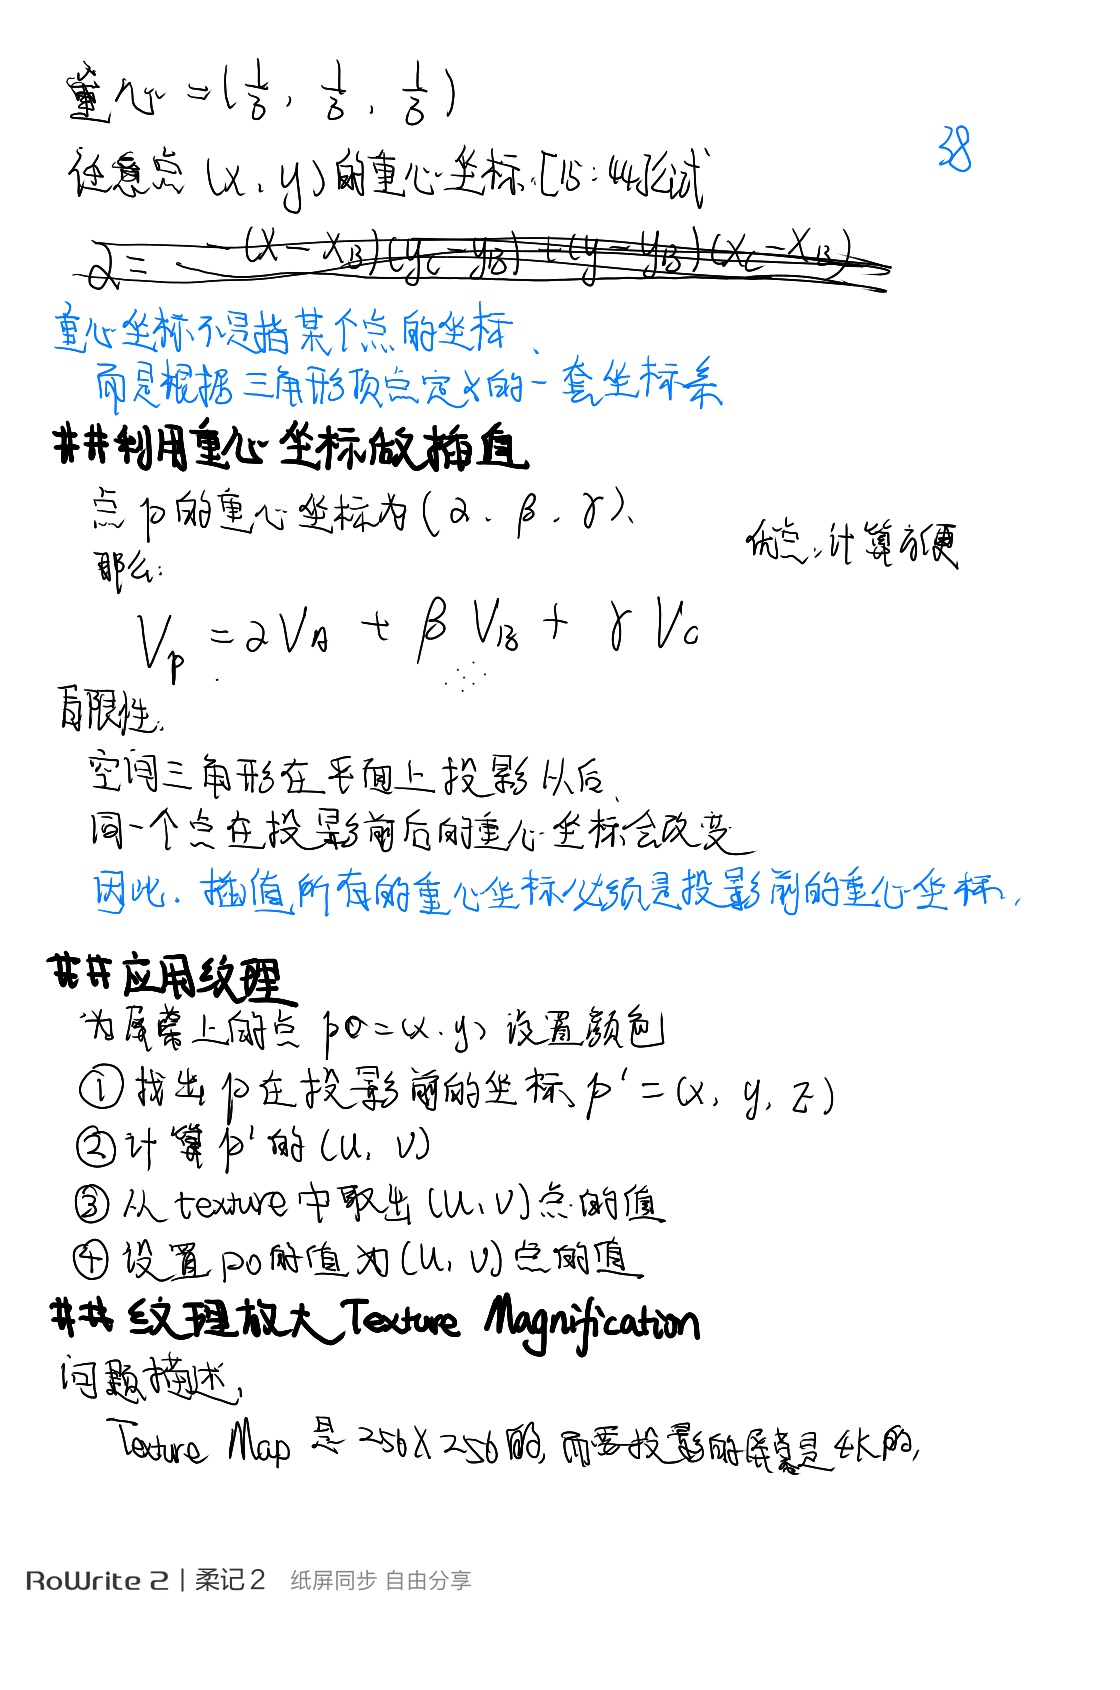 重心 = (1/3, 1/3, 1/3)
38
任意点 (x, y) 的重心坐标: [15:44]公式
α = -(x - xB)(yC - yB) + (y - yB)(xC - xB)
重心坐标不是指某个点的坐标、
而是根据三角形顶点定义的一套坐标系
## 利用重心坐标做插值
点 p 的重心坐标为 (α、β、γ)、
优点: 计算方便
那么:
Vp = αVA + βVB + γVC
局限性:
空间三角形在平面上投影以后、
同一个点在投影前后的重心坐标会改变
因此、插值所有的重心坐标必须是投影前的重心坐标,
## 应用纹理
为屏幕上的点 p0=(x.y) 设置颜色
① 找出 p 在投影前的坐标 p' = (x, y, z)
② 计算 p' 的 (u, v)
③ 从 texture 中取出 (u, v) 点的值
④ 设置 p0 的值为 (u, v) 点的值
## 纹理放大 Texture Magnification
问题描述,
Texture Map 是 256X256 的, 而要投影的屏幕是 4K 的,
RoWrite 2 | 柔记 2 纸屏同步 自由分享